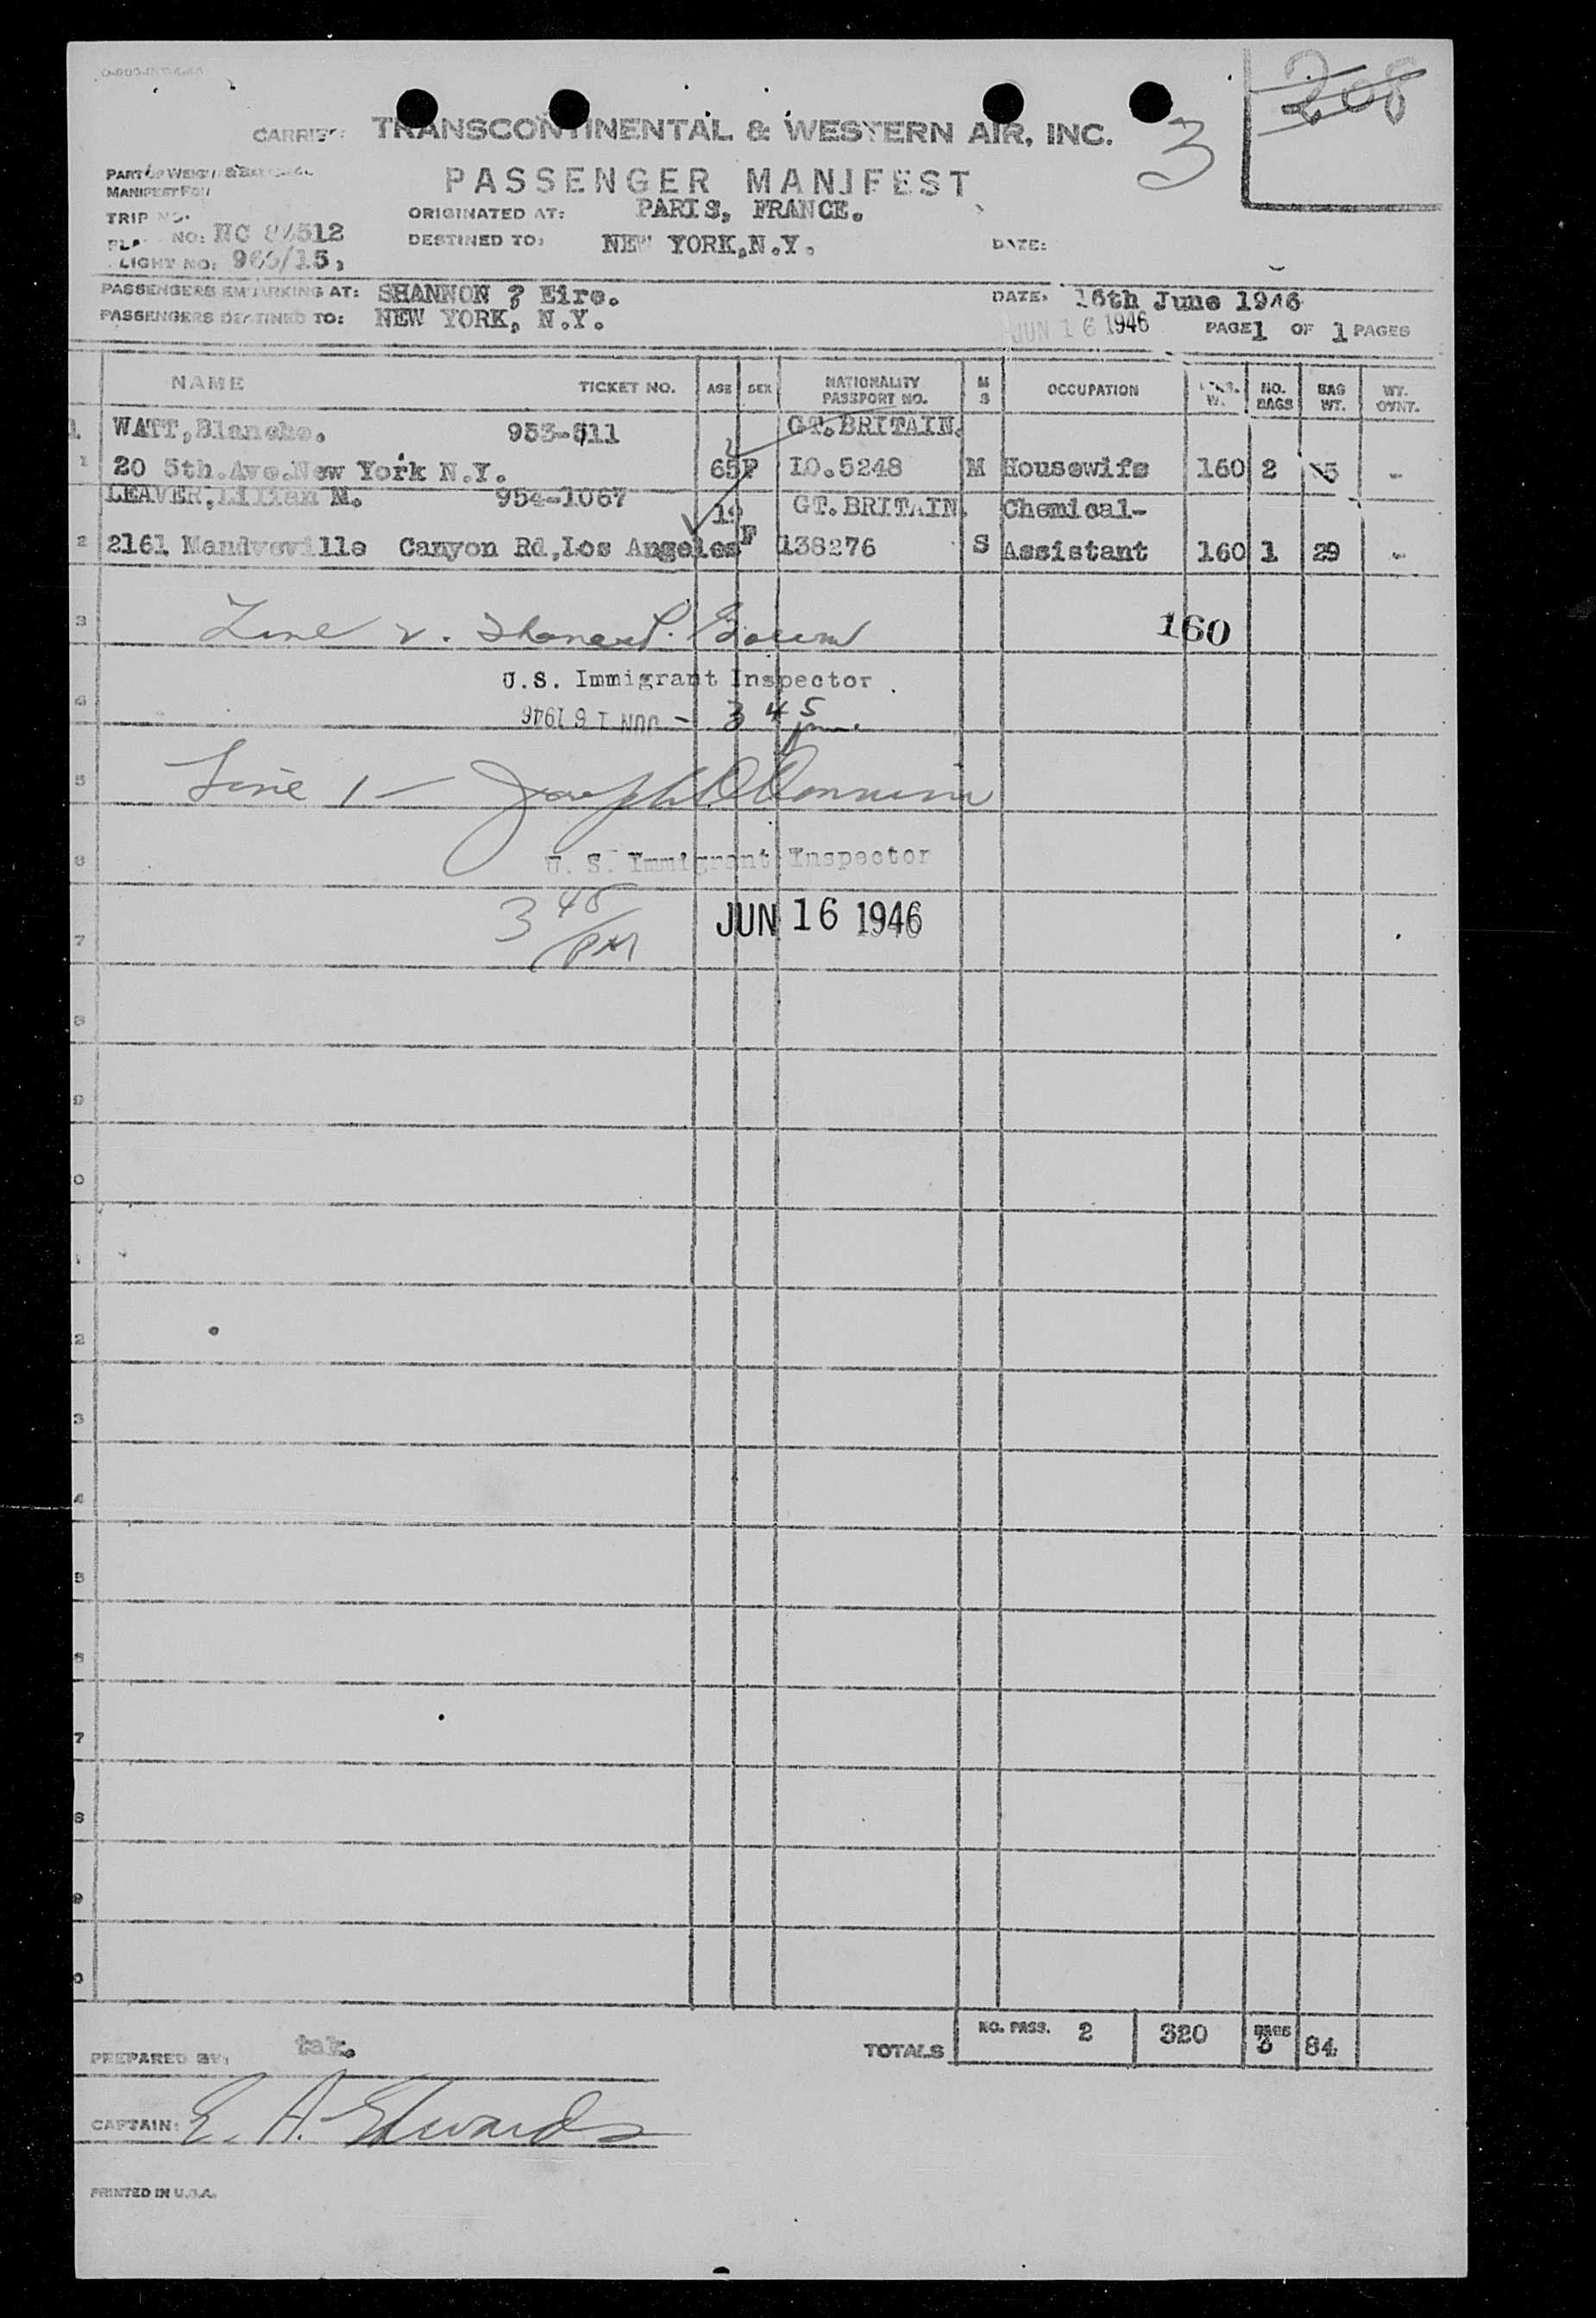 TRANSCONTINENTAL & WESTERN AIR, INC.
3
208
PASSENGER MANIFEST
MANIFEST FOR
TRIP NO.
ORIGINATED AT: PARIS, FRANCE.
NO: NC
DESTINED TO: NEW YORK,N.Y.
DATE:
FLIGHT NO:
PASSENGERS EMBARKING AT: SHANNON ? Eire.
DATE: 16th June 1946
PASSENGERS DESTINED TO: NEW YORK, N.Y.
JUN 16 1946
PAGE 1 OF 1 PAGES
NAME TICKET NO. AGE SEX NATIONALITY PASSPORT NO. M S OCCUPATION NO. BAGS BAG WT. WT. OVNT.
1 WATT,Blanche. 953-511 GT.BRITAIN.
1 20 5th.Ave.New York N.Y. 65 F IO.5248 M Housewife 160 2 -
LEAVER,Lilian M. 954-1067 GT.BRITAIN. Chemical-
2 2161 Canyon Rd,Los Angeles F 138276 S Assistant 160 1 29 -
3 160
U.S. Immigrant Inspector
4 JUN 16 1946 - 3 45 pm.
5 Line 1 - Joseph
6 U. S. Immigrant Inspector
3 45 PM
7 JUN 16 1946
8
9
0
1
2
3
4
5
6
7
8
9
0
TOTALS NO. PASS. 2 320 BAGS 3 84
PREPARED BY:
CAPTAIN: E. A. Edwards
PRINTED IN U.S.A.